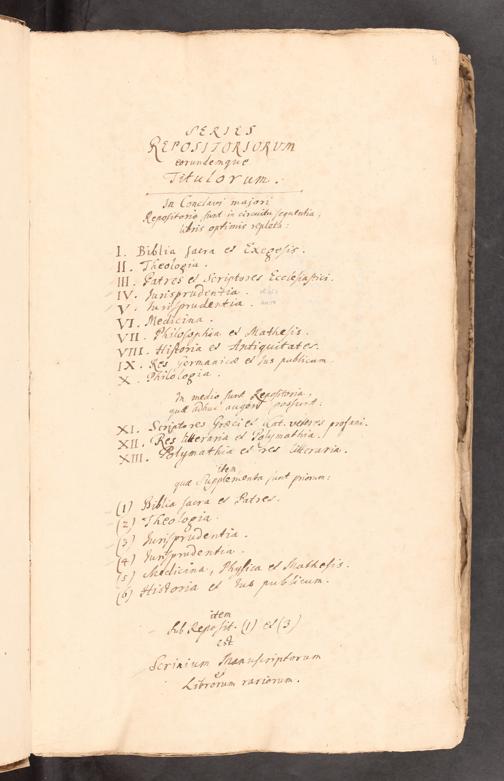 SERIES
REPOSITORIORUM
eorundemque
Titulorum.
In Conclavi majori
Repositorio sunt in circuitu sequentia,
libris optimis repleta:
I. Biblia sacra et Exegesis.
II. Theologia.
III. Patres et Scriptores Ecclesiastici.
IV. Jurisprudentia.
V. Jurisprudentia.
VI. Medicina.
VII. Philosophia et Mathesis.
VIII. Historia et Antiquitates.
IX. Res Germanicæ et Jus publicum.
X. Philologia.
In medio sunt Repositoria,
quæ adhuc augeri possunt:
XI. Scriptores Græci et Lat. veteres profani.
XII. Res litteraria et Polymathia.
XIII. Polymathia et res litteraria.
item
quæ Supplementa sunt priorum:
(1) Biblia sacra et Patres.
(2) Theologia.
(3) Jurisprudentia.
(4) Jurisprudentia.
(5) Medicina, Physica et Mathesis.
(6) Historia et Jus publicum.
item
sub Reposit. (1) et (3)
est
Scrinium Manuscriptorum
et
Librorum rariorum.